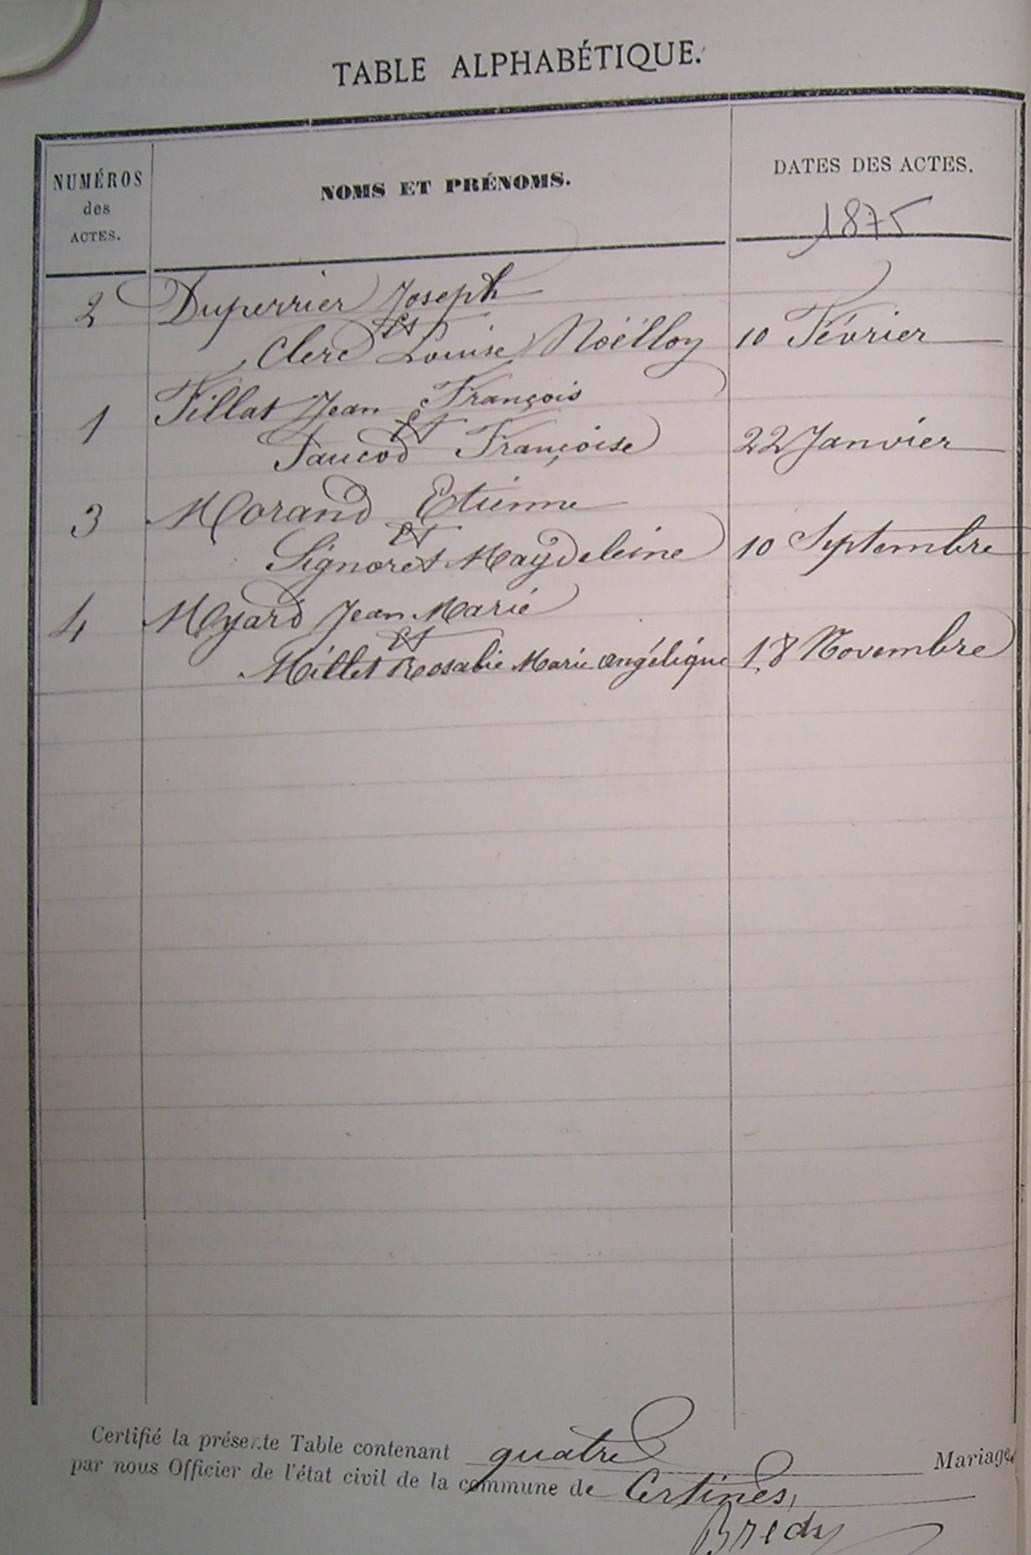 TABLE ALPHABÉTIQUE.
NUMÉROS
des
ACTES.
NOMS ET PRÉNOMS.
DATES DES ACTES.
1875
2 Duperrier Joseph
et
Clerc Louise Noëlloy 10 Février
1 Fillat Jean François
et
Taucod Françoise 22 Janvier
3 Morand Etienne
et
Signoret Maydeleine 10 Septembre
4 Myard Jean Marie
et
Millet Rosalie Marie Angélique 18 Novembre
Certifié la présente Table contenant quatre Mariages
par nous Officier de l'état civil de la commune de Certines,